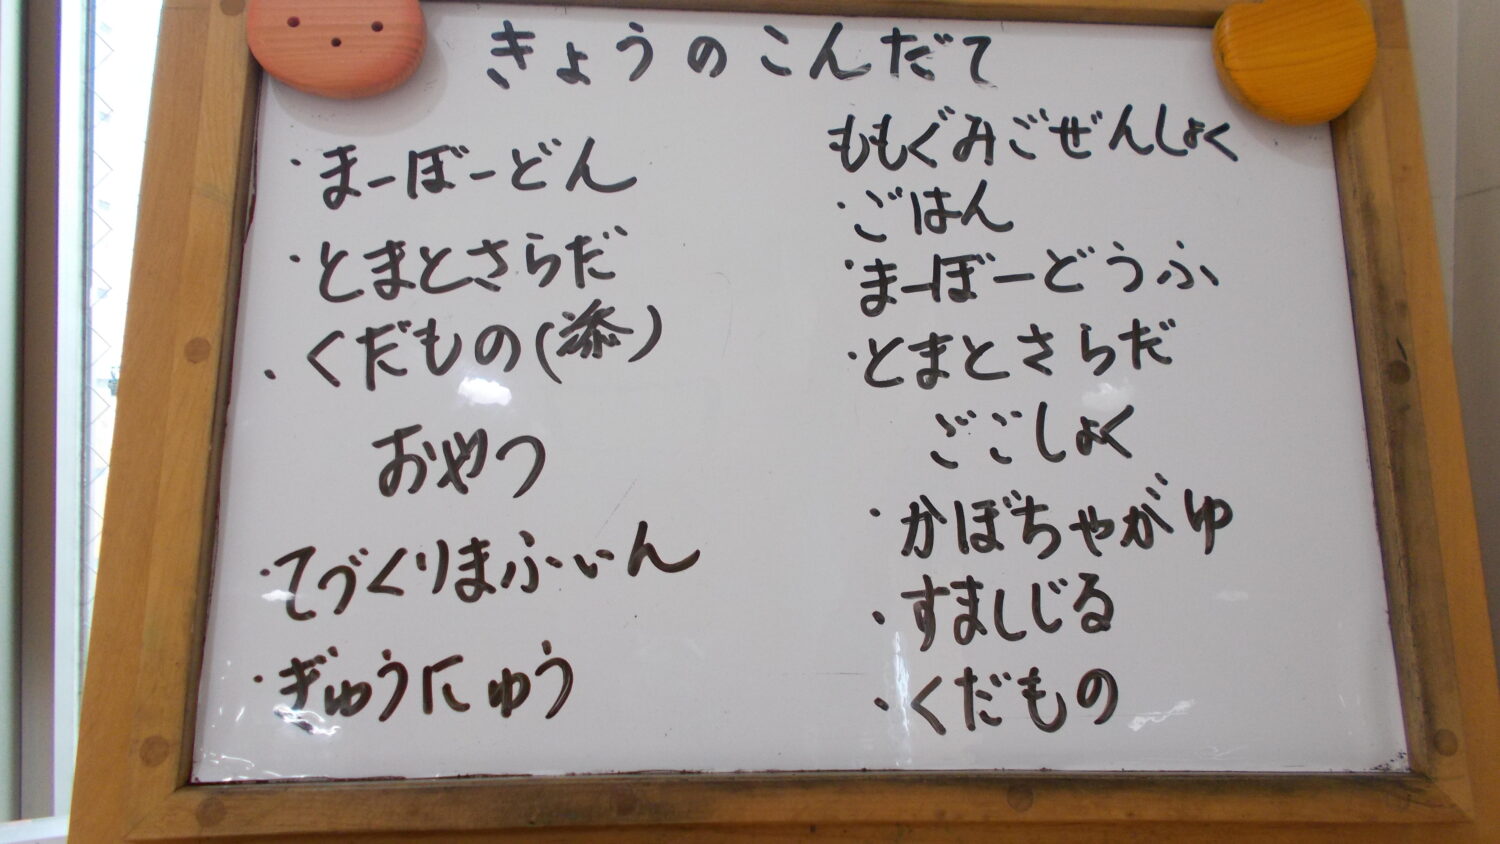 きょうのこんだて
・まーぼーどん
・とまとさらだ
・くだもの(添)
おやつ
・てづくりまふぃん
・ぎゅうにゅう
ももぐみごぜんしょく
・ごはん
・まーぼーどうふ
・とまとさらだ
ごごしょく
・かぼちゃがゆ
・すましじる
・くだもの